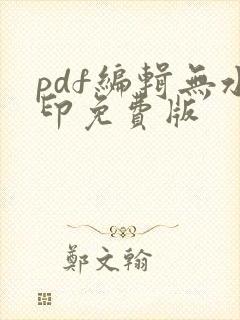 pdf编辑無水
印免費版
鄭文翰